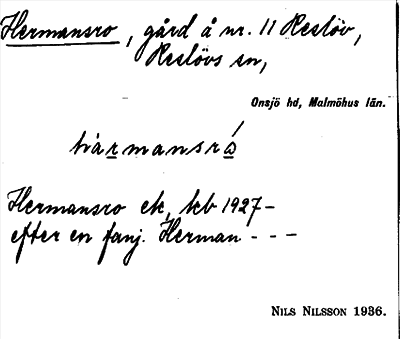 Hermansro, gård å nr. 11 Reslöv,
Reslövs sn,
Onsjö hd, Malmöhus län.
Hermansro ek, kb 1927-
efter en fanj. Herman - - -
NILS NILSSON 1936.